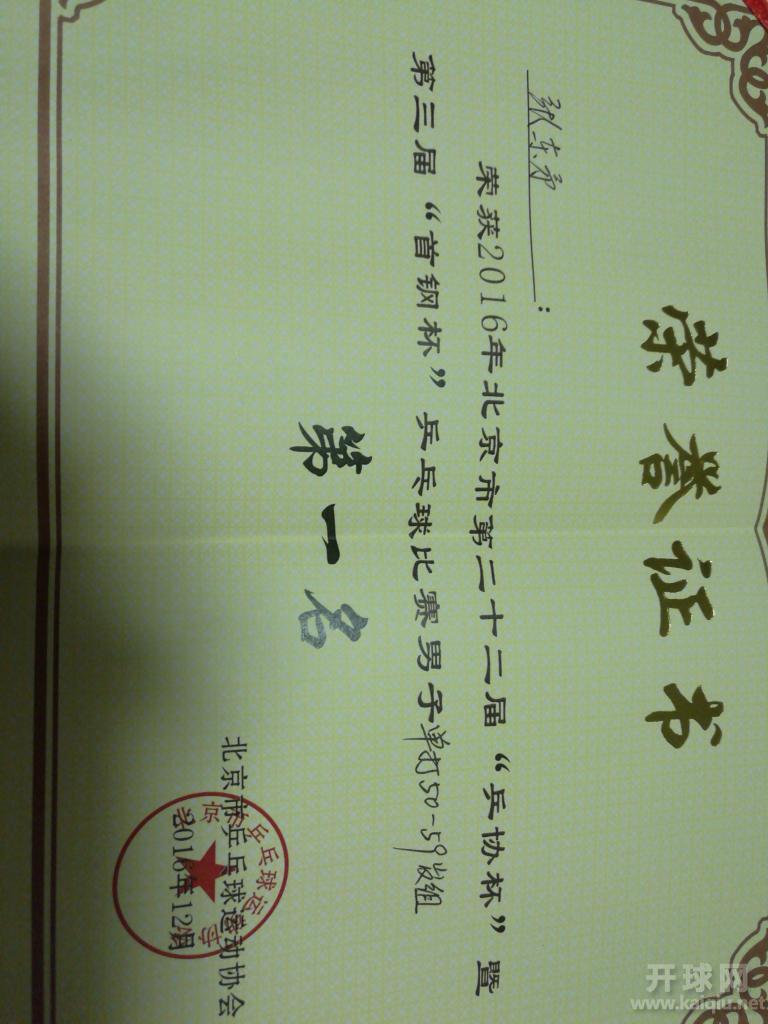 荣誉证书
张东
:
荣获2016年北京市第二十二届“乒协杯”暨
第三届“首钢杯”乒乓球比赛男子单打50-59岁组
第一名
北京市乒乓球运动协会
2016年12月
开球网
www.kaiqiu.net